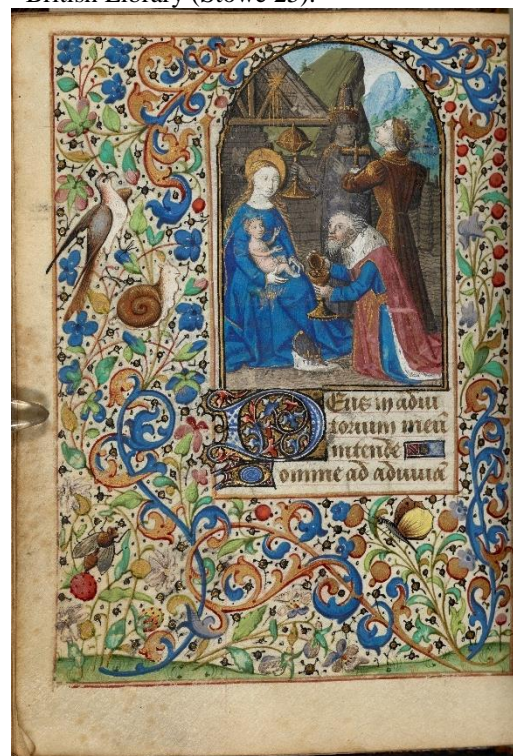 British Library (Stowe 25).
Deus in adiu
torium meū
intende
omine ad adiuuā